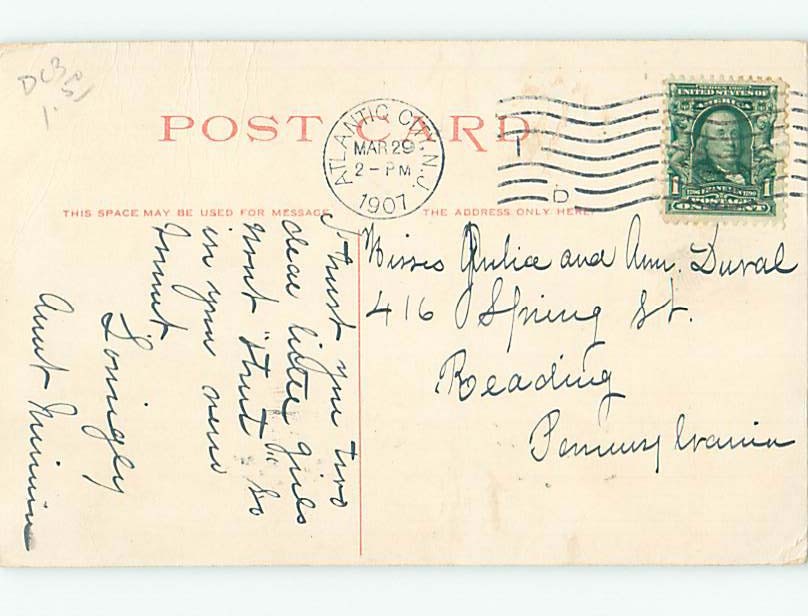 POST CARD
ATLANTIC CITY, N.J.
MAR 29
2 - PM
1907
D
SERIES 1902
UNITED STATES OF
AMERICA
1 FRANKLIN 1
POSTAGE
ONE CENT
THIS SPACE MAY BE USED FOR MESSAGE
THE ADDRESS ONLY HERE
I trust you two
dear little girls
wont "strut" so
in your new
Lovingly
Aunt Minnie
Misses Julia and Ann. Duval
416 Spring St.
Reading
Pennsylvania